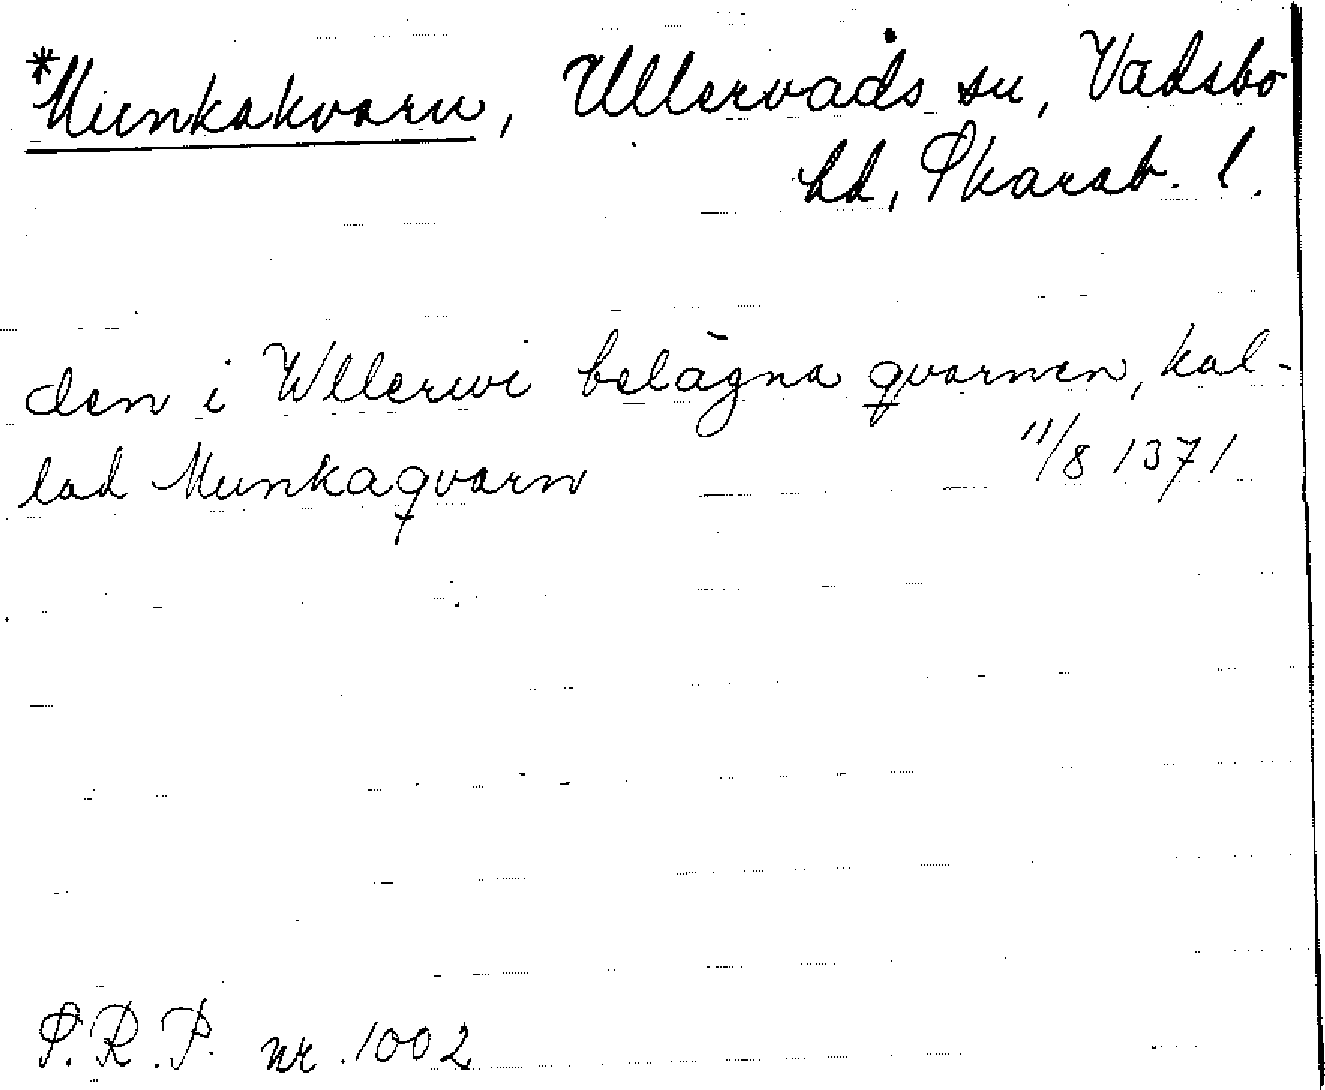 *Munkakvarn, Ullervads sn, Vadsbo
hd, Skarab. l.
den i Wllerwi belägna qvarnen, kal-
lad Munkaqvarn 11/8 1371
S.R.P. nr 1002